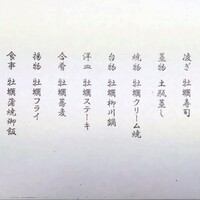 凌ぎ 牡蠣寿司
蒸物 土瓶蒸し
焼物 牡蠣クリーム焼
台物 牡蠣柳川鍋
洋皿 牡蠣ステーキ
合肴 牡蠣蕎麦
揚物 牡蠣フライ
食事 牡蠣蒲焼御飯